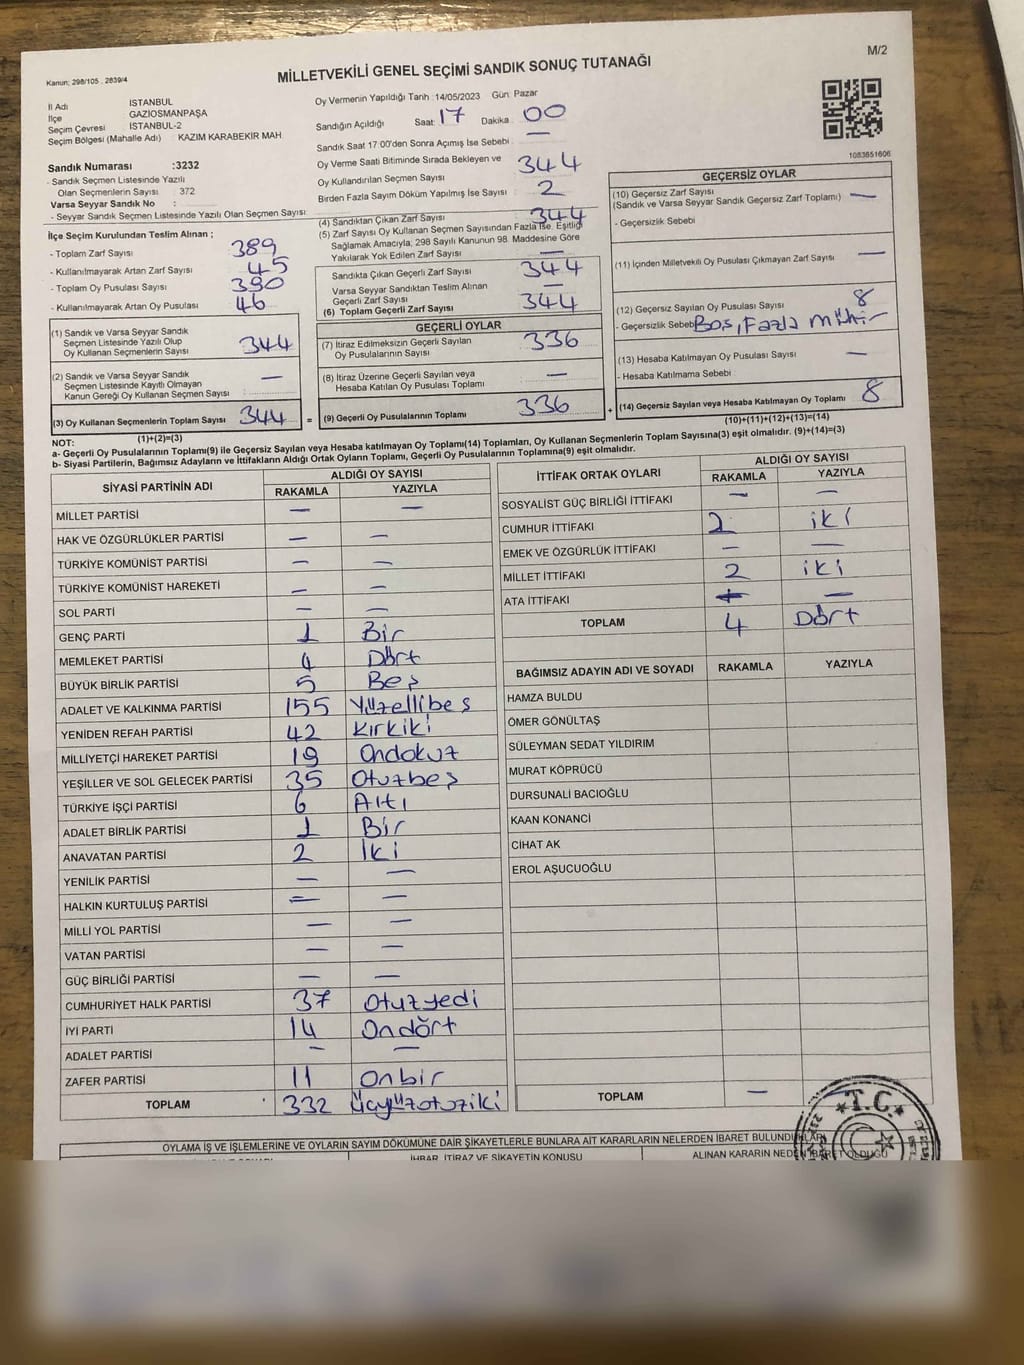 M/2
Kanun: 298/105 . 2839/4
MİLLETVEKİLİ GENEL SEÇİMİ SANDIK SONUÇ TUTANAĞI
İl Adı İSTANBUL
İlçe GAZİOSMANPAŞA
Seçim Çevresi İSTANBUL-2
Seçim Bölgesi (Mahalle Adı) KAZIM KARABEKİR MAH.
Sandık Numarası :3232
- Sandık Seçmen Listesinde Yazılı
Olan Seçmenlerin Sayısı : 372
Varsa Seyyar Sandık No :
- Seyyar Sandık Seçmen Listesinde Yazılı Olan Seçmen Sayısı:
Oy Vermenin Yapıldığı Tarih :14/05/2023 Gün: Pazar
Sandığın Açıldığı Saat: 17 Dakika : 00
Sandık Saat 17.00'den Sonra Açımış İse Sebebi : —
Oy Verme Saati Bitiminde Sırada Bekleyen ve
Oy Kullandırılan Seçmen Sayısı : 344
Birden Fazla Sayım Döküm Yapılmış İse Sayısı : 2
1083651606
İlçe Seçim Kurulundan Teslim Alınan ;
- Toplam Zarf Sayısı : 389
- Kullanılmayarak Artan Zarf Sayısı : 45
- Toplam Oy Pusulası Sayısı : 390
- Kullanılmayarak Artan Oy Pusulası : 46
(1) Sandık ve Varsa Seyyar Sandık
Seçmen Listesinde Yazılı Olup
Oy Kullanan Seçmenlerin Sayısı : 344
(2) Sandık ve Varsa Seyyar Sandık
Seçmen Listesinde Kayıtlı Olmayan
Kanun Gereği Oy Kullanan Seçmen Sayısı : —
(3) Oy Kullanan Seçmenlerin Toplam Sayısı : 344 =
(1)+(2)=(3)
(4) Sandıktan Çıkan Zarf Sayısı : 344
(5) Zarf Sayısı Oy Kullanan Seçmen Sayısından Fazla İse. Eşitliği
Sağlamak Amacıyla; 298 Sayılı Kanunun 98. Maddesine Göre
Yakılarak Yok Edilen Zarf Sayısı : —
Sandıkta Çıkan Geçerli Zarf Sayısı : 344
Varsa Seyyar Sandıktan Teslim Alınan
Geçerli Zarf Sayısı : —
(6) Toplam Geçerli Zarf Sayısı : 344
GEÇERLİ OYLAR
(7) İtiraz Edilmeksizin Geçerli Sayılan
Oy Pusulalarının Sayısı : 336
(8) İtiraz Üzerine Geçerli Sayılan veya
Hesaba Katılan Oy Pusulası Toplamı : —
(9) Geçerli Oy Pusulalarının Toplamı : 336 +
GEÇERSİZ OYLAR
(10) Geçersiz Zarf Sayısı
(Sandık ve Varsa Seyyar Sandık Geçersiz Zarf Toplamı) : —
- Geçersizlik Sebebi :
(11) İçinden Milletvekili Oy Pusulası Çıkmayan Zarf Sayısı : —
(12) Geçersiz Sayılan Oy Pusulası Sayısı : 8
- Geçersizlik Sebebi Boş, Fazla Mühür
(13) Hesaba Katılmayan Oy Pusulası Sayısı : —
- Hesaba Katılmama Sebebi :
(14) Geçersiz Sayılan veya Hesaba Katılmayan Oy Toplamı : 8
(10)+(11)+(12)+(13)=(14)
NOT:
a- Geçerli Oy Pusulalarının Toplamı(9) ile Geçersiz Sayılan veya Hesaba katılmayan Oy Toplamı(14) Toplamları, Oy Kullanan Seçmenlerin Toplam Sayısına(3) eşit olmalıdır. (9)+(14)=(3)
b- Siyasi Partilerin, Bağımsız Adayların ve İttifakların Aldığı Ortak Oyların Toplamı, Geçerli Oy Pusulalarının Toplamına(9) eşit olmalıdır.
SİYASİ PARTİNİN ADI ALDIĞI OY SAYISI
RAKAMLA YAZIYLA
MİLLET PARTİSİ — —
HAK VE ÖZGÜRLÜKLER PARTİSİ — —
TÜRKİYE KOMÜNİST PARTİSİ — —
TÜRKİYE KOMÜNİST HAREKETİ — —
SOL PARTİ — —
GENÇ PARTİ 1 Bir
MEMLEKET PARTİSİ 4 Dört
BÜYÜK BİRLİK PARTİSİ 5 Beş
ADALET VE KALKINMA PARTİSİ 155 Yüzellibeş
YENİDEN REFAH PARTİSİ 42 Kırkiki
MİLLİYETÇİ HAREKET PARTİSİ 19 Ondokuz
YEŞİLLER VE SOL GELECEK PARTİSİ 35 Otuzbeş
TÜRKİYE İŞÇİ PARTİSİ 6 Altı
ADALET BİRLİK PARTİSİ 1 Bir
ANAVATAN PARTİSİ 2 İki
YENİLİK PARTİSİ — —
HALKIN KURTULUŞ PARTİSİ — —
MİLLİ YOL PARTİSİ — —
VATAN PARTİSİ — —
GÜÇ BİRLİĞİ PARTİSİ — —
CUMHURİYET HALK PARTİSİ 37 Otuzyedi
İYİ PARTİ 14 Ondört
ADALET PARTİSİ — —
ZAFER PARTİSİ 11 Onbir
TOPLAM 332 Üçyüzotuziki
İTTİFAK ORTAK OYLARI ALDIĞI OY SAYISI
RAKAMLA YAZIYLA
SOSYALİST GÜÇ BİRLİĞİ İTTİFAKI — —
CUMHUR İTTİFAKI 2 iki
EMEK VE ÖZGÜRLÜK İTTİFAKI — —
MİLLET İTTİFAKI 2 iki
ATA İTTİFAKI — —
TOPLAM 4 Dört
BAĞIMSIZ ADAYIN ADI VE SOYADI RAKAMLA YAZIYLA
HAMZA BULDU
ÖMER GÖNÜLTAŞ
SÜLEYMAN SEDAT YILDIRIM
MURAT KÖPRÜCÜ
DURSUNALİ BACIOĞLU
KAAN KONANCİ
CİHAT AK
EROL AŞUCUOĞLU
TOPLAM —
T.C.
OYLAMA İŞ VE İŞLEMLERİNE VE OYLARIN SAYIM DÖKÜMÜNE DAİR ŞİKAYETLERLE BUNLARA AİT KARARLARIN NELERDEN İBARET BULUNDUKLARI
İHBAR, İTİRAZ VE ŞİKAYETİN KONUSU
ALINAN KARARIN NEDEN İBARET OLDUĞU